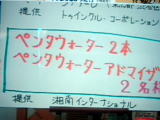 提供 トゥインクル・コーポレーション
ペンタウォーター2本
ペンタウォーターアドマイザー
2名様
提供 湘南インターナショナル